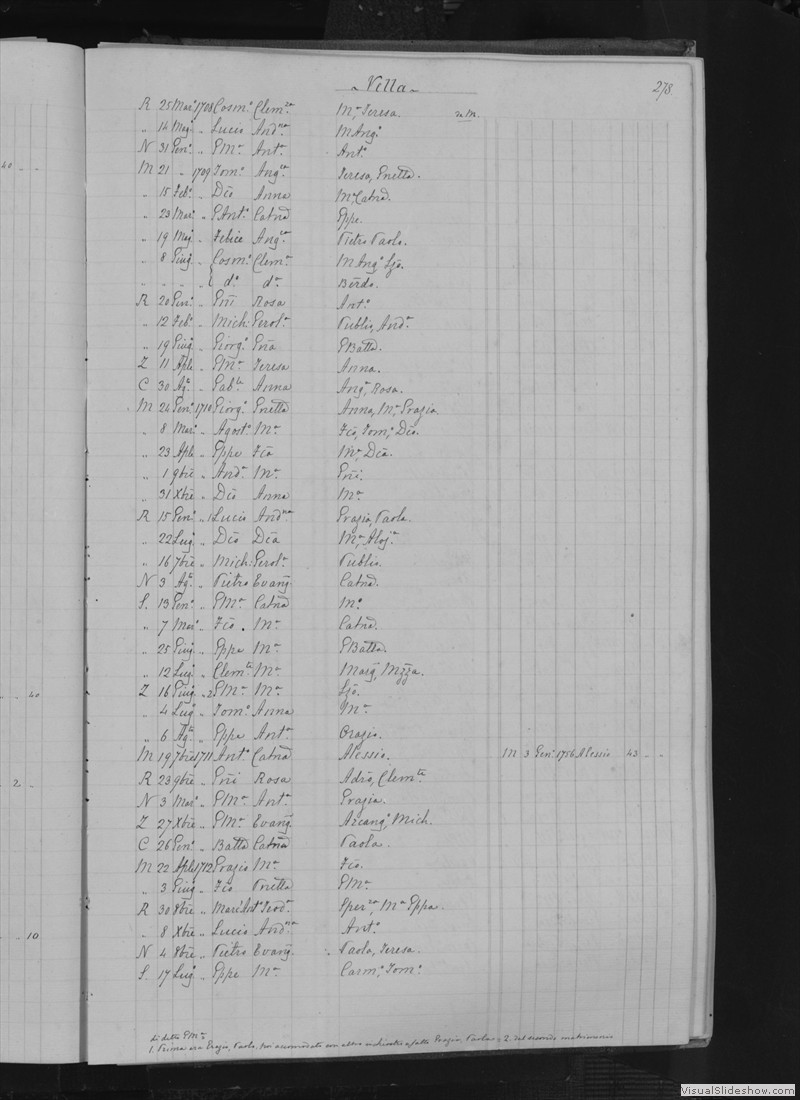 Villa
278
R 25 Mar. 1708 Cosm.o Clem.za M.a Teresa.
„ 14 Mag. „ Lucio And.na M Ang.a
N 31 Gen.o „ G M.a Ant.a Ant.o
M 21 „ 1709 Tom.o Ang.ca Teresa, Gnetta.
„ 15 Feb.o „ Dco Anna M.a Catna.
„ 23 Mar. „ G Ant.o Catna Gppe.
„ 19 Mag. „ Felice Ang.ca Pietro Paolo.
„ 8 Giug. „ Cosm.o Clem.a M Ang.o Lzo.
„ „ „ „ d.o d.a Berdo.
R 20 Gen.o „ Gni Rosa Ant.o
„ 12 Feb.o „ Mich: Gerol.a Publio, And.a
„ 19 Giug. „ Giorg.o Gna G Batta.
Z 11 Aple „ G M.a Teresa Anna.
C 30 Ag.o „ Gab.le Anna Ang.a, Rosa.
M 24 Gen.o 1710 Giorg.o Gnetta Anna, M.a Grazia
„ 8 Mar. „ Agost.o M.a Fco, Tom.o, Dco.
„ 23 Aple „ Gppe Fca M.a, Dca.
„ 1 9bre „ And.a M.a Gni.
„ 31 Xbre „ Dco Anna M.a
R 15 Gen.o „ 1 Lucio And.na Grazia, Paola.
„ 22 Lug. „ Dco Dca M.a, Aloj.a
„ 16 7bre „ Mich: Gerol.a Publio.
N 3 Ag.o „ Pietro Evang. Catna.
S. 13 Gen.o „ G M.a Catna M.a
„ 7 Mar. „ Fco. M.a Catna.
„ 25 Giug. „ Gppe M.a G Batta.
„ 12 Lug. „ Clem.te M.a Marg., Mzza.
Z 16 Giug. „ 2 G M.a M.a Lzo.
„ 4 Lug.o „ Tom.o Anna M.a
„ 6 Ag.o „ Gppe Ant.a Orazio.
M 19 7bre 1711 Ant.o Catna Alessio. M 3 Gen.o 1756 Alessio 43 „ „
R 23 9bre „ Gni Rosa Adro, Clem.te
N 3 Mar. „ G M.a Ant.a Grazia.
Z 27 Xbre „ G M.a Evang. Arcang.o, Mich.
C 26 Gen.o „ Batta Catna Paola.
M 22 Aple 1712 Grazio M.a Fco.
„ 3 Giug. „ Fco Gnetta G M.a
R 30 8bre „ Ant.o Teod.a Sper.za, M.a Gppa.
„ 8 Xbre „ Lucio And.na Ant.o
N 4 8bre „ Pietro Evang. Paolo, Teresa.
S. 17 Lug. „ Gppe M.a Carm.o, Tom.o
di detto G M.a
1. Prima era Grazia, Paolo, poi accomodato con altro inchiostro e fatto Grazia, Paola. 2. del secondo matrimonio
40 „ „
„ „ 40
2 „
„ 10
VisualSlideshow.com